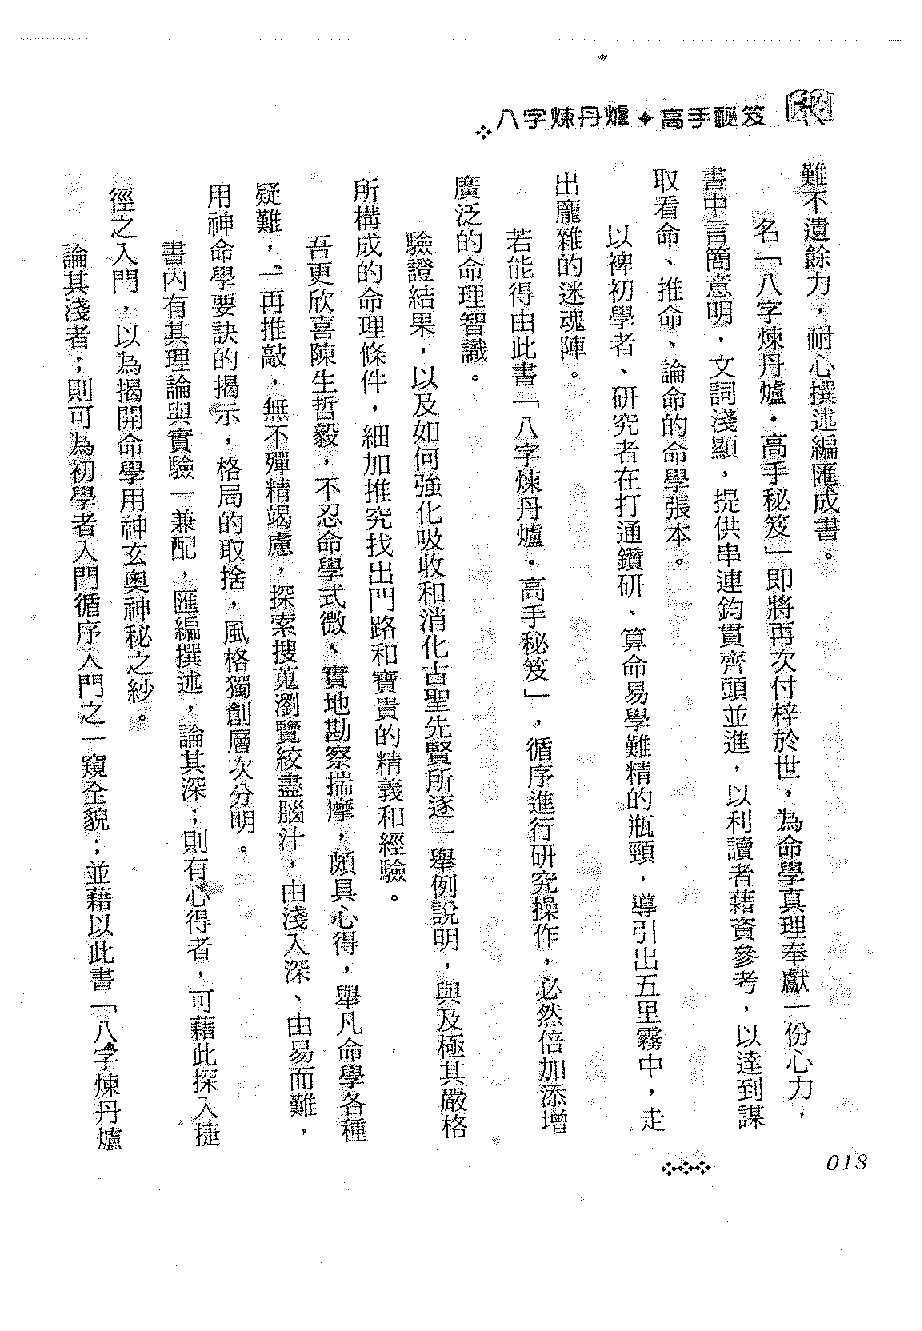 八字煉丹爐✦高手秘笈
難不遺餘力,耐心撰述編匯成書。
名「八字煉丹爐・高手秘笈」即將再次付梓於世,為命學真理奉獻一份心力,
書中言簡意明,文詞淺顯,提供串連鈞貫齊頭並進,以利讀者藉資參考,以達到謀
取看命、推命、論命的命學張本。
以裨初學者、研究者在打通鑽研、算命易學難精的瓶頸,導引出五里霧中,走
出龐雜的迷魂陣。
若能得由此書「八字煉丹爐・高手秘笈」,循序進行研究操作,必然倍加添增
廣泛的命理智識。
驗證結果,以及如何強化吸收和消化古聖先賢所逐一舉例說明,與及極其嚴格
所構成的命理條件,細加推究找出門路和寶貴的精義和經驗。
吾更欣喜陳生哲毅,不忍命學式微,實地勘察揣摩,頗具心得,舉凡命學各種
疑難,一再推敲,無不殫精竭慮,探索搜蒐瀏覽絞盡腦汁,由淺入深、由易而難,
用神命學要訣的揭示,格局的取捨,風格獨創層次分明。
書內有其理論與實驗一兼配,匯編撰述,論其深;則有心得者,可藉此探入捷
徑之入門,以為揭開命學用神玄奧神秘之紗。
論其淺者;則可為初學者入門循序入門之一窺全貌;並藉以此書「八字煉丹爐
018